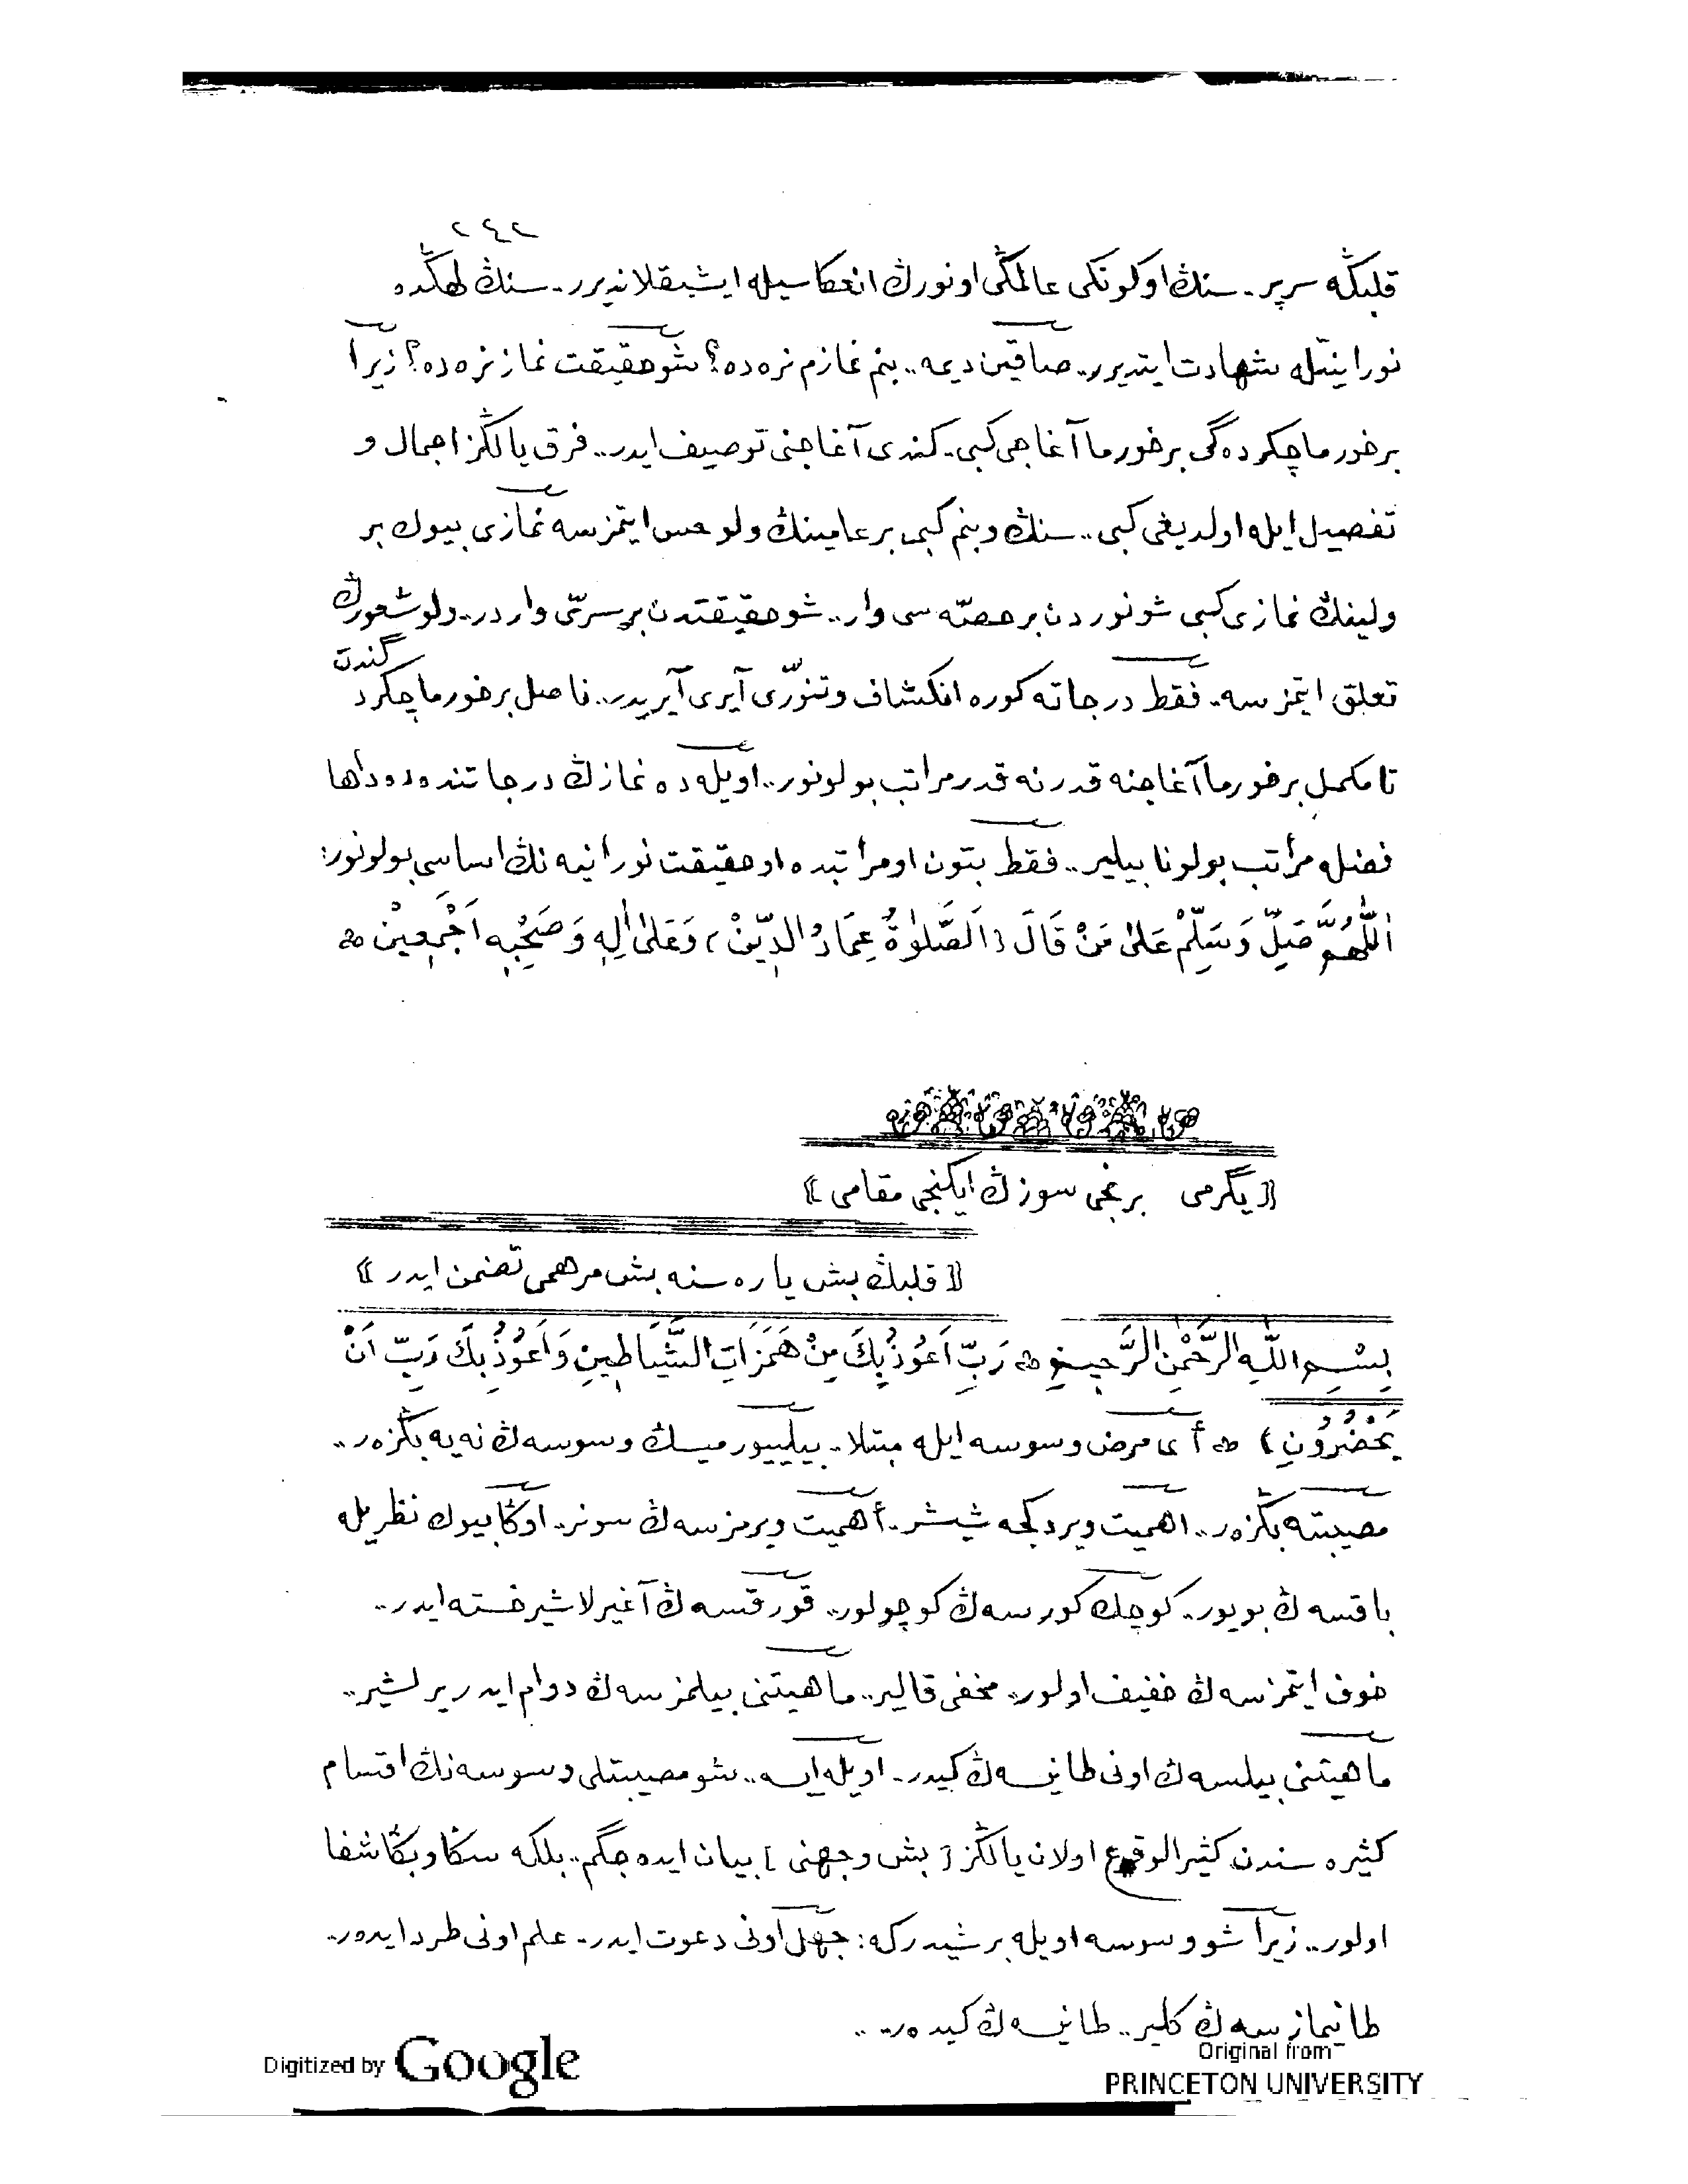 ٢٤٢
قلبڭه سرپر.. سنڭ او كونكی عالمڭی او نورڭ انعكاسیله ایشیقلاندیرر.. سنڭ لهڭده
نورانیتله شهادت ایتدیرر.. صاقین دیمه.. بنم نمازم نره‌ده؟ شو حقیقت نماز نره‌ده؟ زیرا
بر خورما چكرده‌گی بر خورما آغاجی كبی.. كندی آغاجنی توصیف ایدر.. فرق یالڭز اجمال و
تفصیل ایله اولدیغی كبی.. سنڭ و بنم كبی بر عامینڭ ولو حس ایتمزسه نمازی بیوك بر
ولینڭ نمازی كبی شو نوردن بر حصّه‌سی وار.. شو حقیقتدن بر سرّی واردر.. ولو شعورڭ
تعلق ایتمزسه.. فقط درجاته كوره انكشاف و تنوّری آیری آیریدر.. ناصل بر خورما چكرد
گندن
تا مكمل بر خورما آغاجنه قدر نه قدر مراتب بولونور.. اویله‌ده نمازڭ درجاتنده‌ده داها
فضله مراتب بولونا بیلیر.. فقط بتون او مراتبده او حقیقت نورانیه‌نڭ اساسی بولونور:
اَللّٰهُمَّ صَلِّ وَسَلِّمْ عَلٰى مَنْ قَالَ (اَلصَّلٰوةُ عِمَادُ الدِّيْنْ) وَعَلٰى اٰلِهِ وَصَحْبِهِ اَجْمَعِيْنْ
⟪ یگرمی برنجی سوزڭ ایكنجی مقامی ⟫
⟪ قلبڭ بش یاره‌سنه بش مرهمی تضمن ایدر ⟫
بِسْمِ اللّٰهِ الرَّحْمٰنِ الرَّحِيمِ رَبِّ اَعُوذُ بِكَ مِنْ هَمَزَاتِ الشَّيَاطِينِ وَاَعُوذُ بِكَ رَبِّ اَنْ
يَحْضُرُونِ ) أی مرض وسوسه ایله مبتلا.. بیلیيورمیسڭ وسوسه‌ڭ نه‌یه بڭزه‌ر..
مصیبته بڭزه‌ر.. اهمیت ویردكجه شیشر.. أهمیت ویرمزسه‌ڭ سونر.. اوڭا بیوك نظریله
باقسه‌ڭ بویور.. كوچك كورسه‌ڭ كوچولور.. قورقسه‌ڭ آغیرلاشیر خسته ایدر..
خوف ایتمزسه‌ڭ خفیف اولور.. مخفی قالیر.. ماهیتنی بیلمزسه‌ڭ دوام ایدر یرلشیر..
ماهیتنی بیلسه‌ڭ اونی طانیسه‌ڭ كیدر.. اویله ایسه.. شو مصیبتلی وسوسه‌نڭ اقسام
كثیره‌سندن كثیرالوقوع اولان یالڭز [بش وجهنی] بیان ایده‌جگم.. بلكه سڭا و بڭا شفا
اولور.. زیرا شو وسوسه اویله بر شیدركه: جهل اونی دعوت ایدر.. علم اونی طرد ایده‌ر..
طانیمازسه‌ڭ كلیر.. طانیسه‌ڭ كیده‌ر..
Digitized by Google
Original from
PRINCETON UNIVERSITY